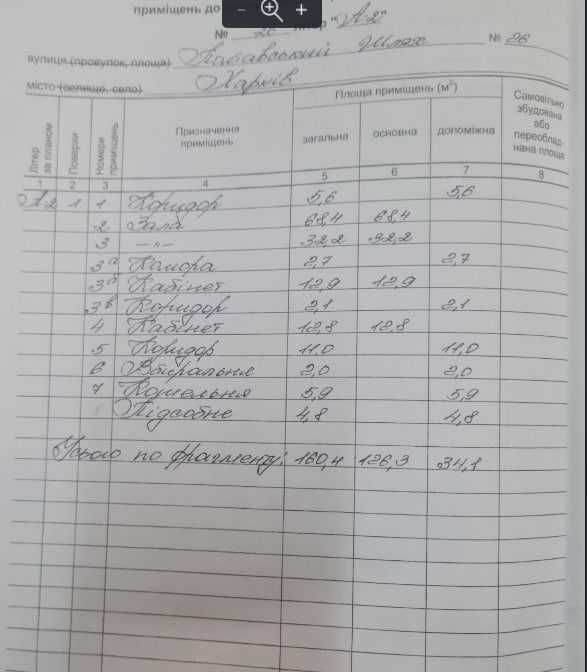 приміщень до
№ 26 літер "А-2"
вулиця (провулок, площа) Полтавський Шлях № 26
місто (селище, село) Харків
Літер за планом
Поверхи
Номери приміщень
Призначення приміщень
Площа приміщень (м²)
загальна основна допоміжна
Самовільно збудована або переоблад- нана площа
1 2 3 4 5 6 7 8
А-2 1 1 Коридор 5,6 5,6
2 Зала 68,4 68,4
3 —„— 32,2 32,2
3а Комора 2,7 2,7
3б Кабінет 12,9 12,9
3в Коридор 2,1 2,1
4 Кабінет 12,8 12,8
5 Коридор 11,0 11,0
6 Вбиральня 2,0 2,0
7 Котельня 5,9 5,9
Підсобне 4,8 4,8
Усього по фрагменту: 160,4 126,3 34,1